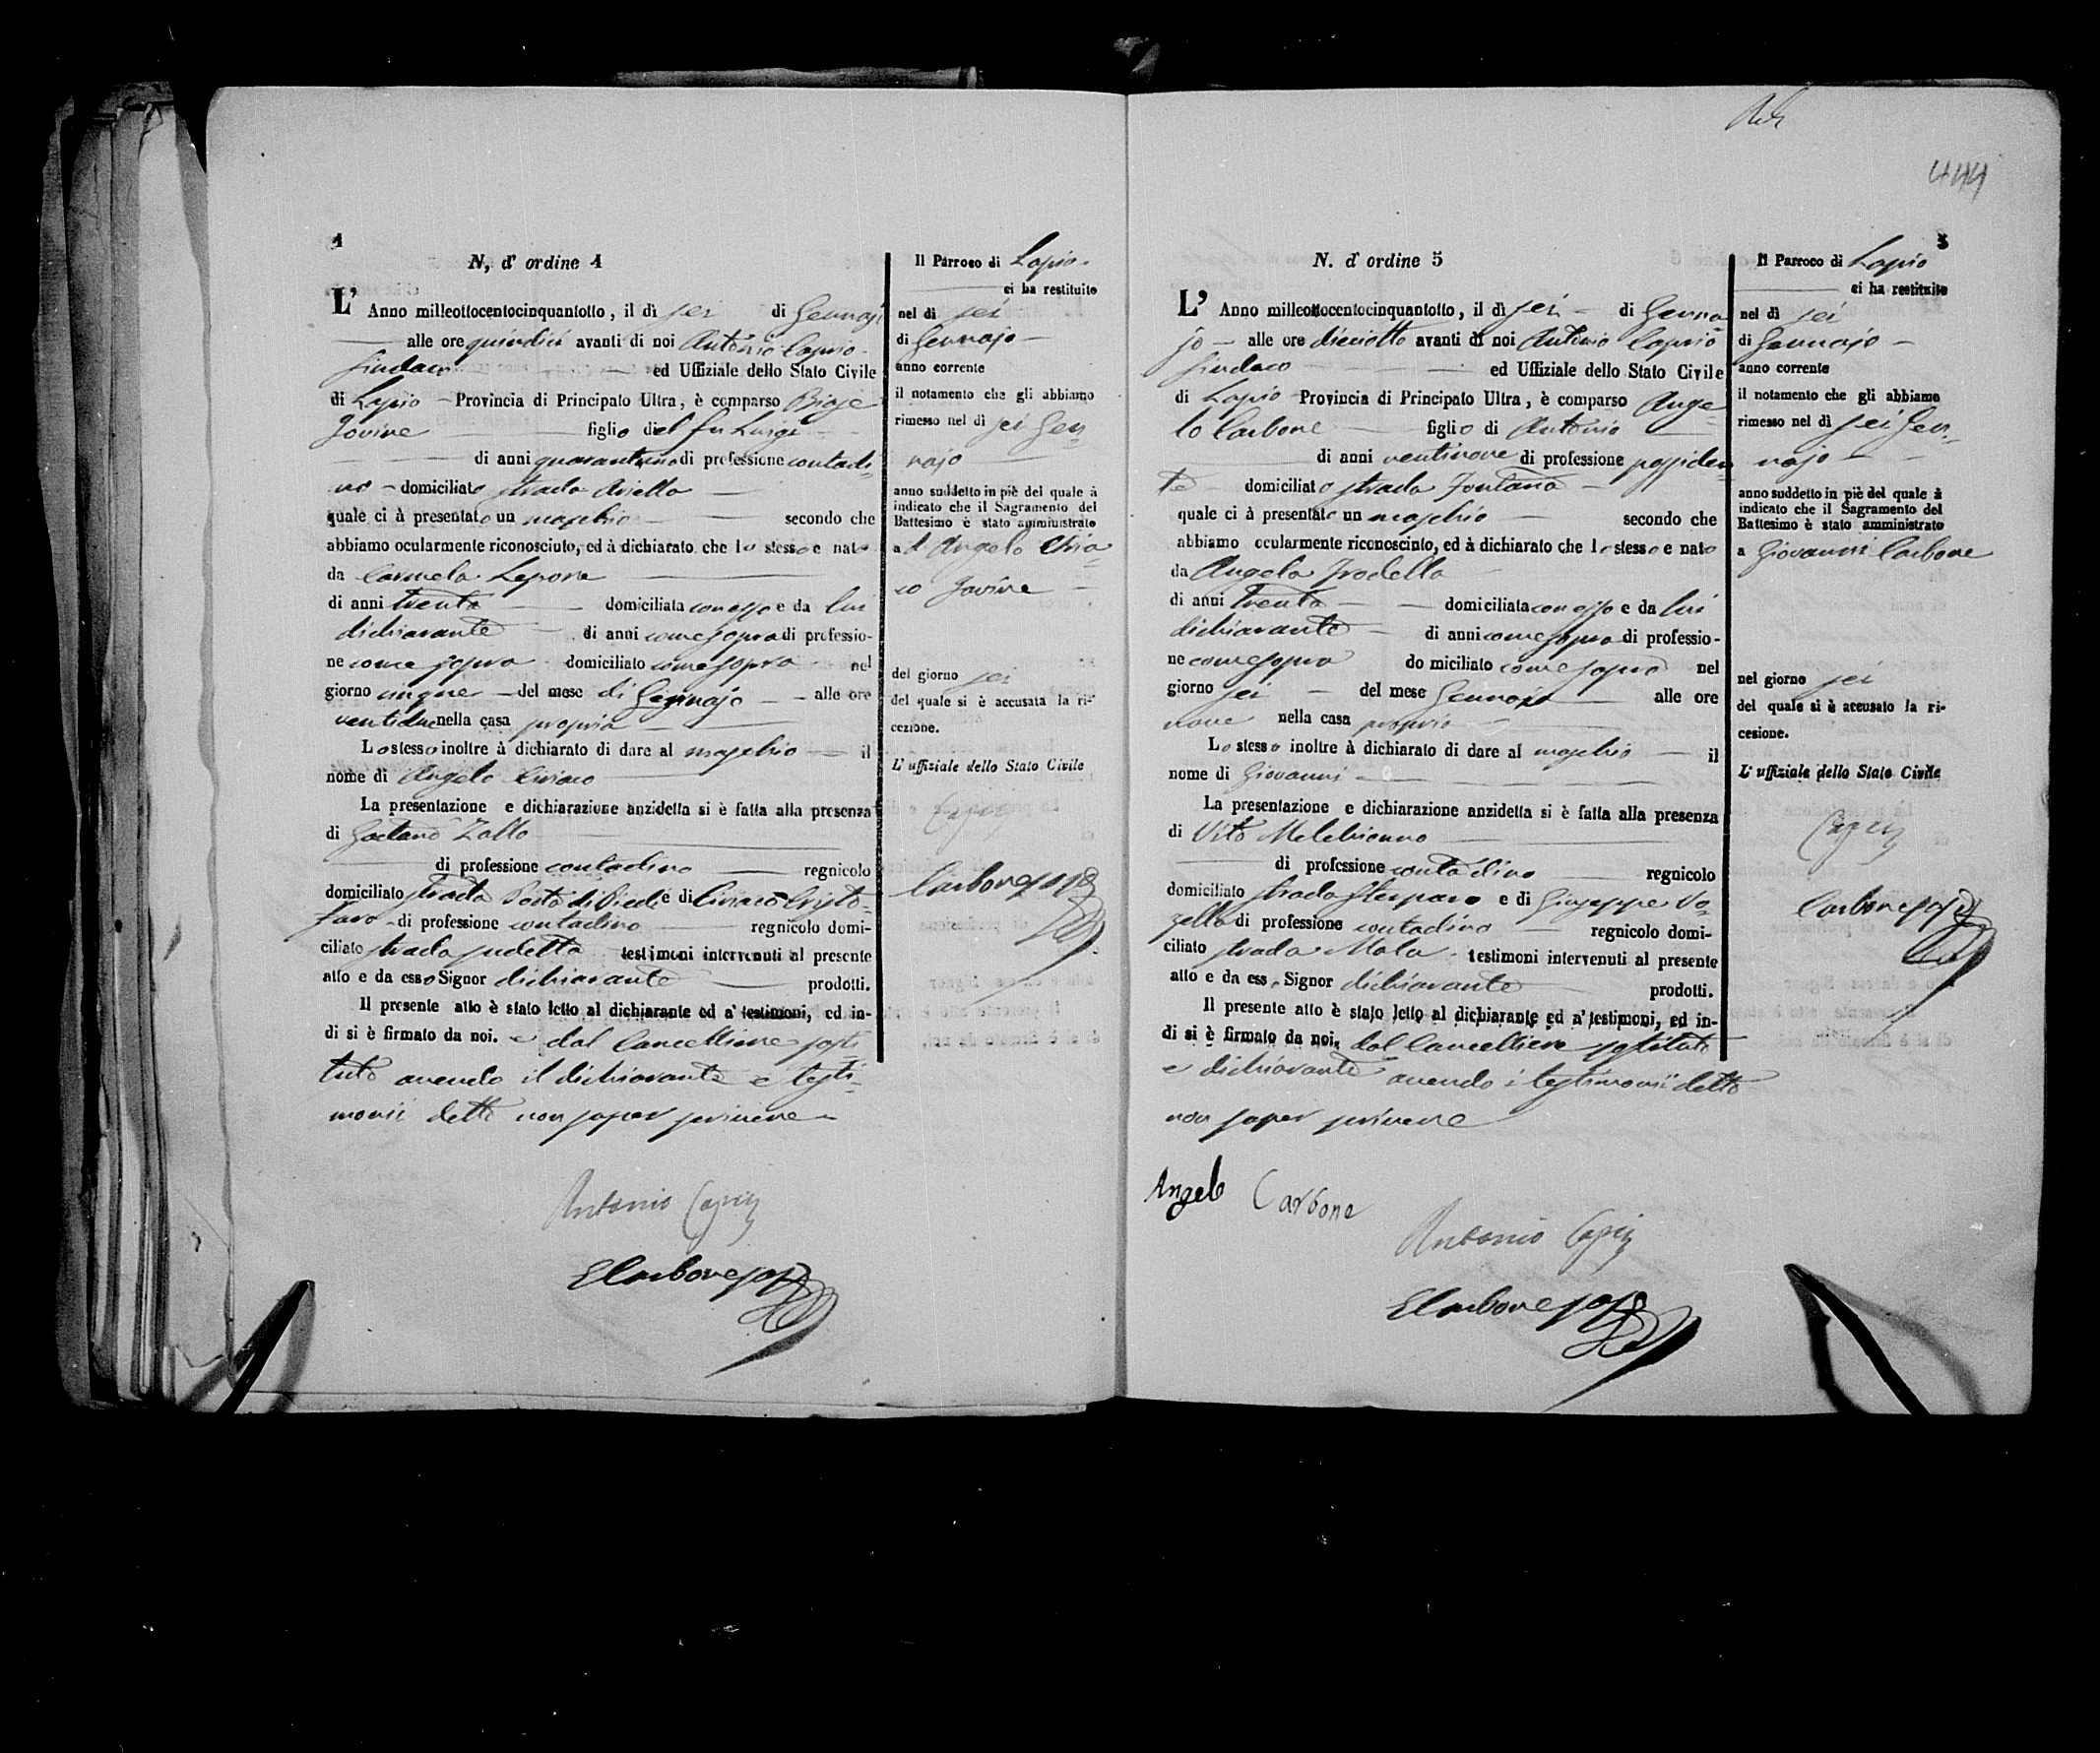 4
N, d' ordine 4
L' Anno milleottocentocinquantotto, il dì sei di Gennajo
alle ore quindici avanti di noi Antonio Caprio
Sindaco ed Uffiziale dello Stato Civile
di Lapio Provincia di Principato Ultra, è comparso Biaje
Jovine figlio del fu Luigi
di anni quarantuno di professione contadi-
no domiciliato strada Ariella
quale ci à presentato un maschio secondo che
abbiamo ocularmente riconosciuto, ed à dichiarato che lo stesso e nato
da Carmela Lepore
di anni trenta domiciliata con esso e da lui
dichiarante di anni come sopra di professio-
ne come sopra domiciliato come sopra nel
giorno cinque del mese di Gennajo alle ore
ventidue nella casa propria
Lo stesso inoltre à dichiarato di dare al maschio il
nome di Angelo Ciriaco
La presentazione e dichiarazione anzidetta si è fatta alla presenza
di Gaetano Zollo
di professione contadino regnicolo
domiciliato strada Porta di Piedi e di Ciriaco Cristo-
faro di professione contadino regnicolo domi-
ciliato strada testimoni intervenuti al presente
atto e da esso Signor dichiarante prodotti.
Il presente atto è stato letto al dichiarante ed a' testimoni, ed in-
di si è firmato da noi. e dal Cancelliere sosti
tuto avendo il dichiarante e testi-
monii detto non saper scrivere
Antonio Caprio
ECarbone sosto
Il Parroco di Lapio
ci ha restituito
nel dì sei
di Gennajo
anno corrente
il notamento che gli abbiamo
rimesso nel dì sei Gen-
najo
anno suddetto in piè del quale à
indicato che il Sagramento del
Battesimo è stato amministrato
a d' Angelo Chia-
co Jovine
del giorno sei
del quale si è accusata la ri-
cezione.
L' uffiziale dello Stato Civile
Caprio
Carbone sosto
444
5
N. d' ordine 5
L' Anno milleottocentocinquantotto, il dì sei di Genna
jo alle ore dieciotto avanti di noi Antonio Caprio
Sindaco ed Uffiziale dello Stato Civile
di Lapio Provincia di Principato Ultra, è comparso Ange
lo Carbone figlio di Antonio
di anni ventinove di professione possiden
te domiciliato strada Fontana
quale ci à presentato un maschio secondo che
abbiamo ocularmente riconosciuto, ed à dichiarato che lo stesso e nato
da Angela Trodella
di anni trenta domiciliata con esso e da lui
dichiarante di anni come sopra di professio-
ne come sopra do miciliato come sopra nel
giorno sei del mese Gennajo alle ore
nove nella casa propria
Lo stesso inoltre à dichiarato di dare al maschio il
nome di Giovanni
La presentazione e dichiarazione anzidetta si è fatta alla presenza
di Vito Melchionno
di professione contadino regnicolo
domiciliato strada Sterparo e di Giuseppe Vo-
zella di professione contadino regnicolo domi-
ciliato strada Mala testimoni intervenuti al presente
atto e da ess. Signor dichiarante prodotti.
Il presente atto è stato letto al dichiarante ed a' testimoni, ed in-
di si è firmato da noi, dal Cancelliere sostituto
e dichiarante avendo i testimonii detto
non saper scrivere
Angelo Carbone
Antonio Caprio
ECarbone sosto
Il Parroco di Lapio
ci ha restituito
nel dì sei
di Gennajo
anno corrente
il notamento che gli abbiamo
rimesso nel dì sei Gen-
najo
anno suddetto in piè del quale à
indicato che il Sagramento del
Battesimo è stato amministrato
a Giovanni Carbone
nel giorno sei
del quale si è accusato la ri-
cesione.
L' uffiziale dello Stato Civile
Caprio
Carbone sosto